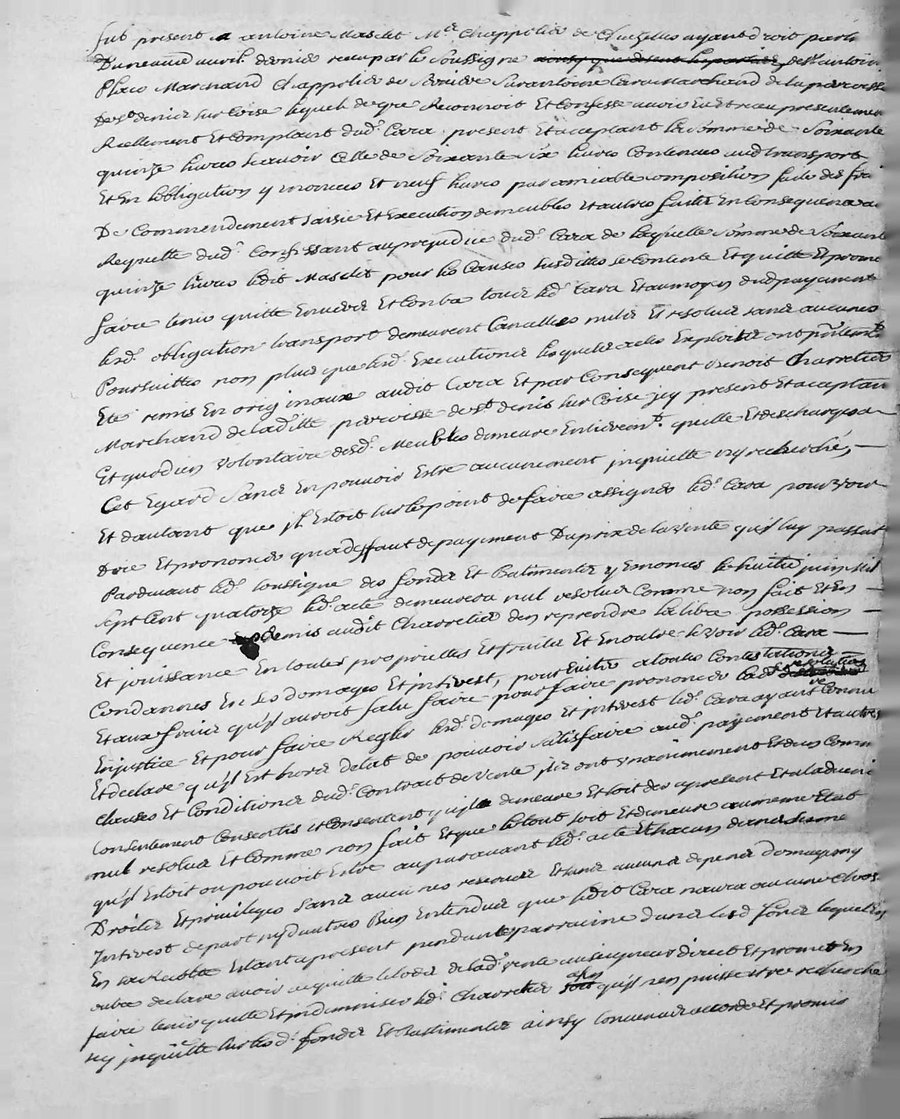 fut present antoine Masclet M.e Chappellier de Chazelles ayant droit par
Du neuf avril dernier receu par le soussigne de St antoine
Marchand Chappellier de Sur antoine Cara Marchand de la parroisse
De St denis sur Coise lequel de gre Reconnoit et Confesse avoir Eu et receu presentement
Reellement Et Comptant dud. Cara present Et acceptant la Somme de Soixante
quinze livres scavoir Celle de Soixante six livres Contenues aud transport
Et En lobligation y enoncee Et neuf livres par amiable composition faite des frais
De Commendement saisie Et Execution de meubles Et autres faits En Consequence a
Requette dud. au prejudice dud. Cara de laquelle Somme de Soixante
quinze livres ledit Masclet pour les Causes susdittes se Contente Et quitte Et promet
faire tenir quitte Envers Et Contre tous led. Cara Et au moyen dud payement
lesd. obligation transport demeurent Cancelles nuls Et resolus sans aucunes
Poursuittes non plus que lesd. Executions lesquels actes Exploits ont presentemt
Ete remis En originaux audit Cara Et par Consequent Benoit Charretier
Marchand de laditte parroisse de St denis sur Coise jcy present Et acceptant
Et gardien volontaire desd. Meubles demeure Entierem.t quitte Et descharge a
Cet Egard Sans En pouvoir Estre aucunement jnquiette ny recherché,
Et dautant que jl Estoit sur le point de faire assigner led. Cara pour voir
Dire Et prononcer qua deffaut de payement Du prix de la vente qu'il luy passat
Pardevant led. soussigne des fonds Et Batiments y Enonces le huitie juin Mil
sept Cent quatorze led. acte demeurera nul resolu Comme non fait Et En
Consequence permis audit Charretier den reprendre la libre possession
Et jouissance En toutes proprietes Et fruits Et En outre se voir led. Cara
Condamner En ses domages Et interest, pour Eviter a toutes Contestations
Et aux frais qu'il auroit falu faire pour faire prononcer lad. resolution
En justice Et pour faire Regler lesd. domages Et jnterest led. Cara ayant Connu
Et declare qu'il Est hors detat de pouvoir satisfaire aud. payement Et autres
Clauses Et Conditions dud. Contrait de vente jls ont unanimement Et dun Commun
Consentement Consentis Et Consentent quil demeure Et soit des apresent Et a ladvenir
nul resolu Et Comme non fait Et que le tout soit Et demeure au meme Etat
qu'il Estoit ou pouvoit Estre auparavant led. acte Et chacun dans ses meme
Droits Et privileges sans aucunes reserves Et sans aucuns depens domages ny
Jnterest de part ny dautres Bien Entendu que ledit Cara naura aucune chose
En sa recolte Estant apresent pendante par racine dans lesd fonds lequel En
outre declare avoir acquitte les lods de lad. vente au seigneur direct Et promet En
faire tenir quitte Et jndemniser led. Charretier afin qu'il nen puisse etre recherche
ny jnquiette sur lesd. fonds Et Battiments ainsy Convenu accorde Et promis